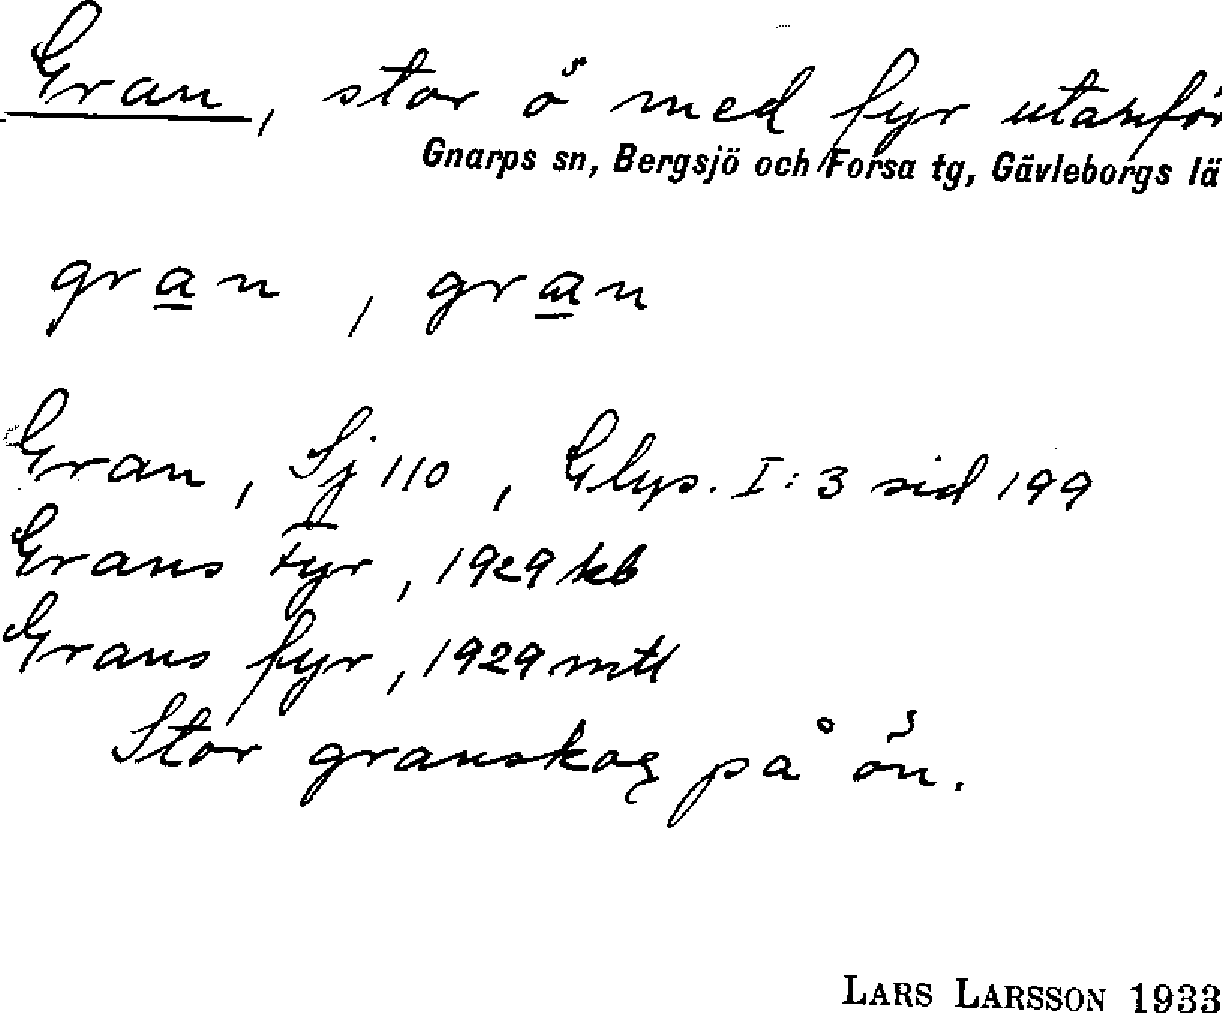 Gran, stor ö med fyr utanför
Gnarps sn, Bergsjö och Forsa tg, Gävleborgs lä
gran, gran
Gran, Sj 110, Glys. I:3 sid 199
Grans fyr, 1929 kb
Grans fyr, 1929 mtl
Stor granskog på ön.
LARS LARSSON 1933